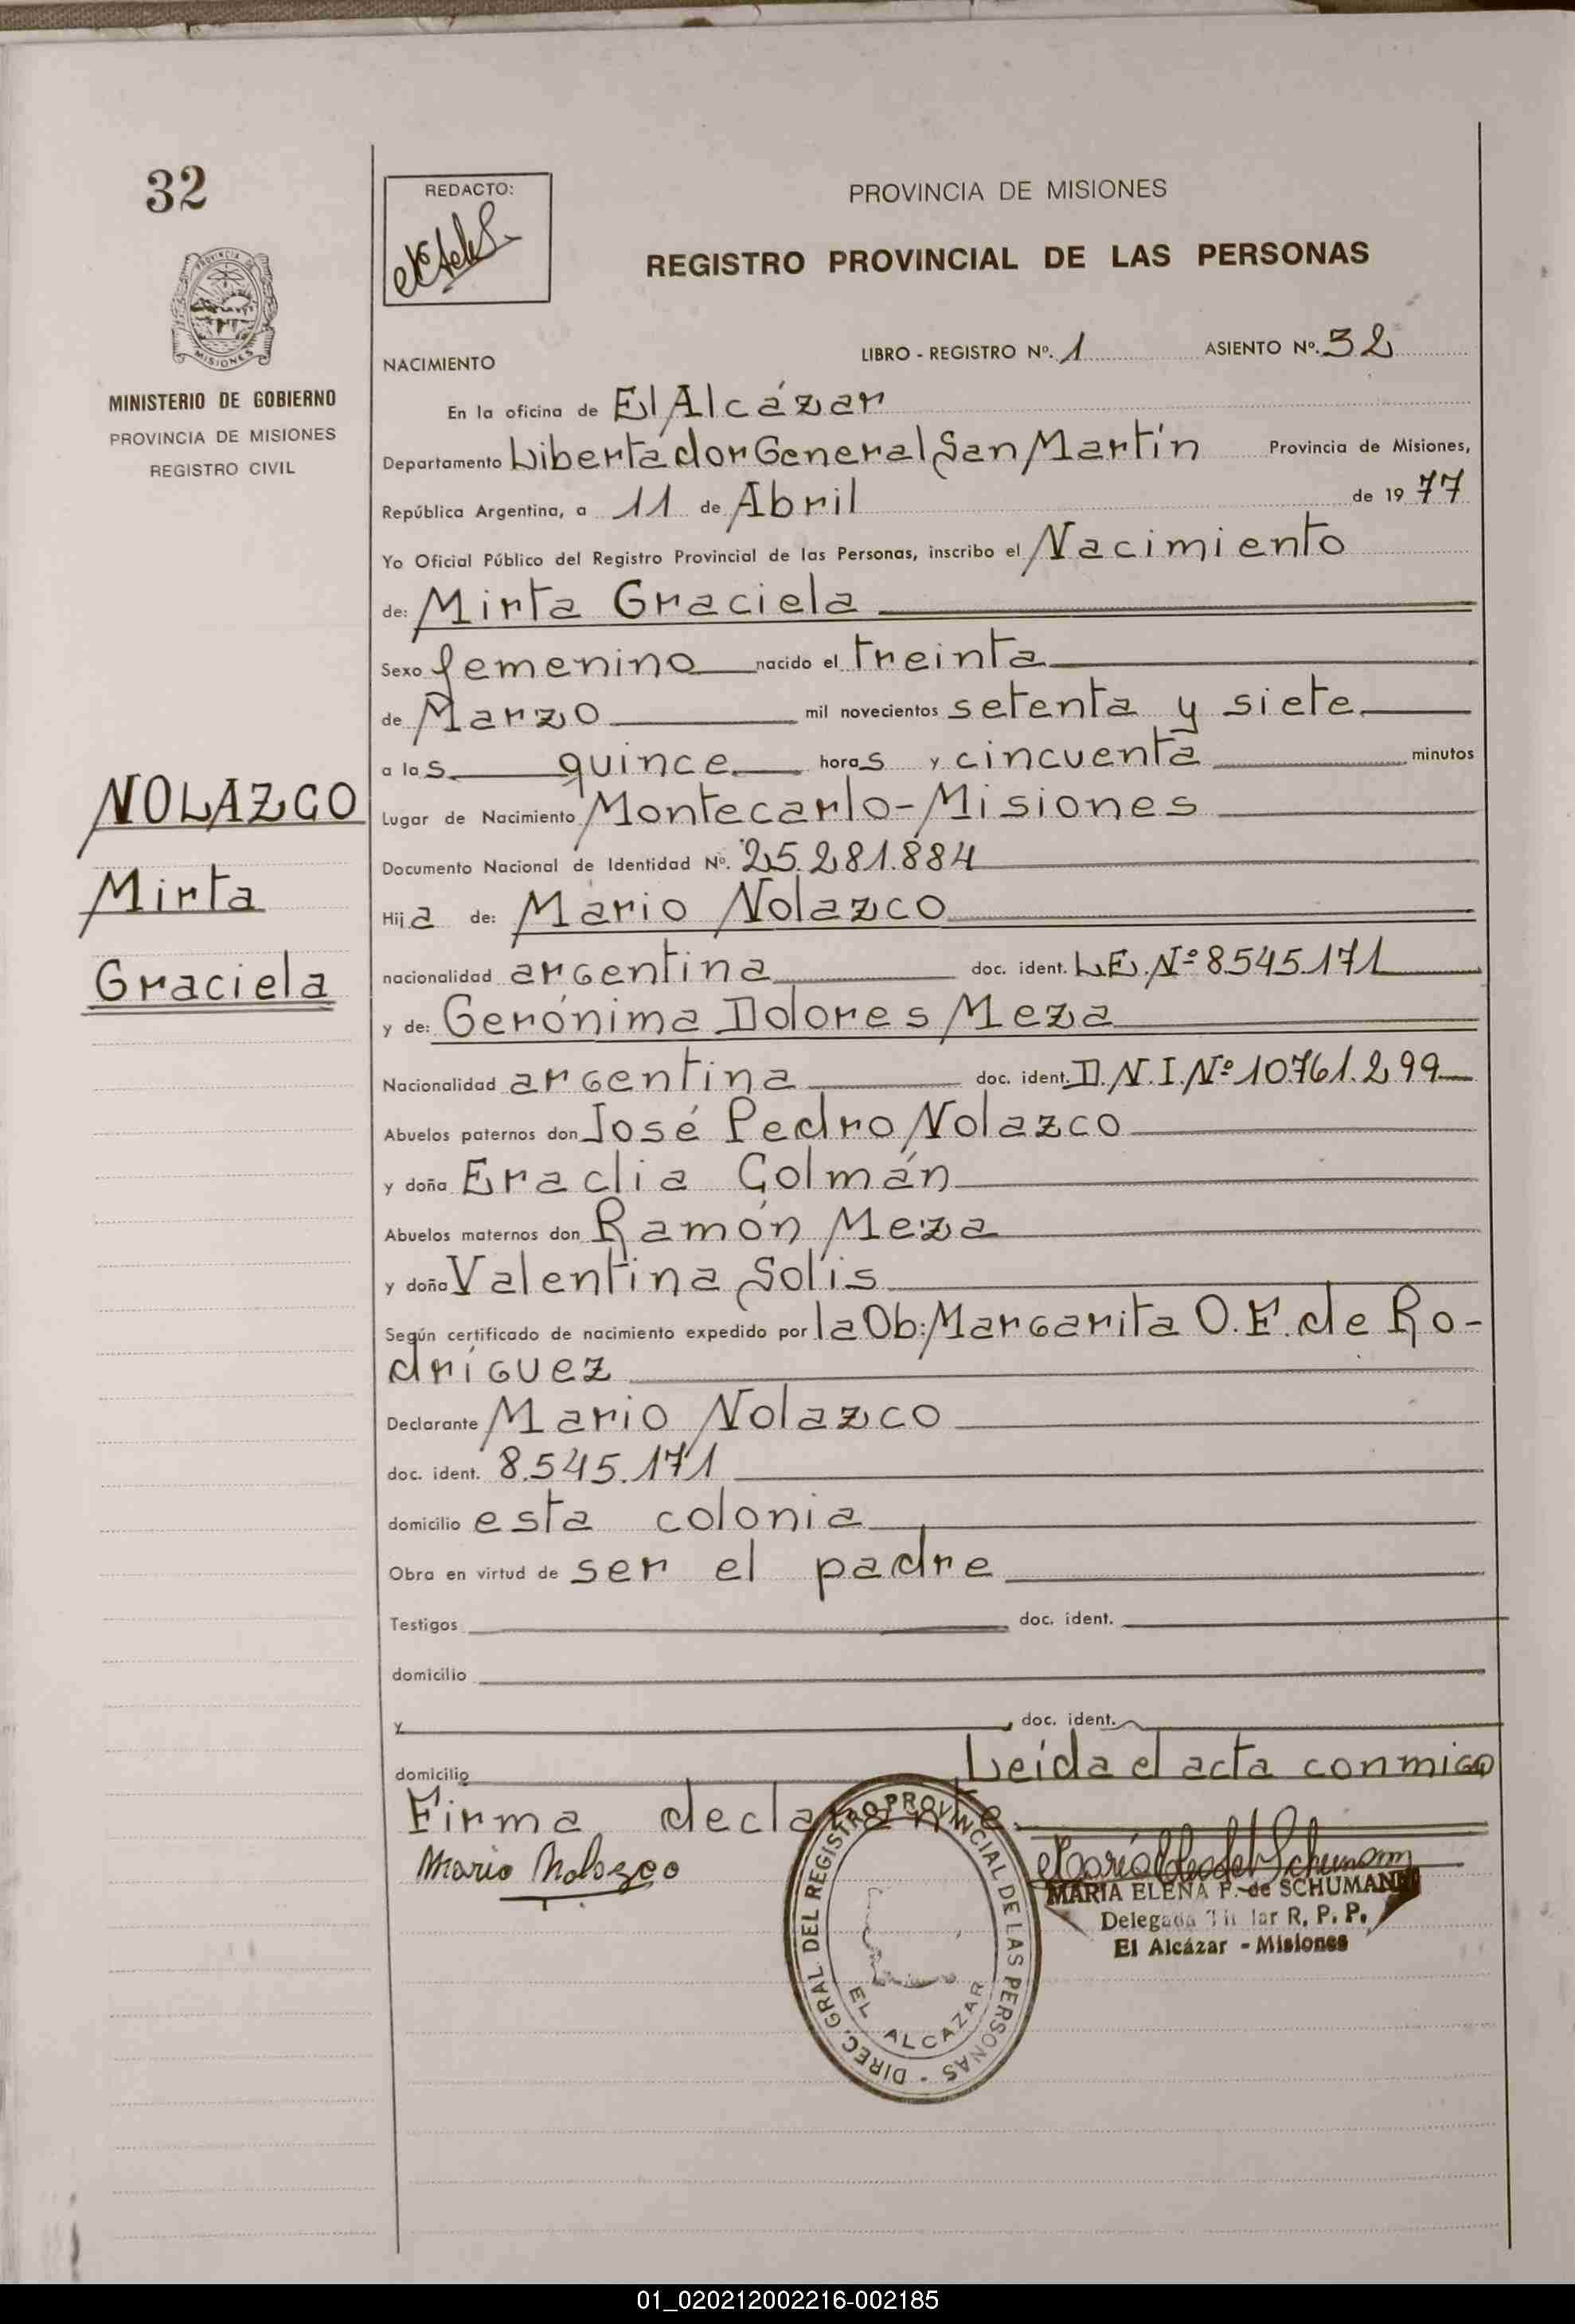 32
REDACTO:
PROVINCIA DE MISIONES
REGISTRO PROVINCIAL DE LAS PERSONAS
PROVINCIA DE
MISIONES
MINISTERIO DE GOBIERNO
PROVINCIA DE MISIONES
REGISTRO CIVIL
NACIMIENTO LIBRO - REGISTRO Nº. 1 ASIENTO Nº. 32
En la oficina de El Alcázar
Departamento Libertador General San Martín Provincia de Misiones,
República Argentina, a 11 de Abril de 19 77
Yo Oficial Público del Registro Provincial de las Personas, inscribo el Nacimiento
de: Mirta Graciela
Sexo femenino nacido el treinta
de Marzo mil novecientos setenta y siete
a las quince horas y cincuenta minutos
NOLAZCO
Mirta
Graciela
Lugar de Nacimiento Montecarlo-Misiones
Documento Nacional de Identidad Nº. 25.281.884
Hija de: Mario Nolazco
nacionalidad argentina doc. ident. L.E. Nº 8.545.171
y de: Gerónima Dolores Meza
Nacionalidad argentina doc. ident. D.N.I. Nº 10.761.299
Abuelos paternos don José Pedro Nolazco
y doña Eraclia Colmán
Abuelos maternos don Ramón Meza
y doña Valentina Solís
Según certificado de nacimiento expedido por la Ob: Margarita O.F. de Ro-
dríguez
Declarante Mario Nolazco
doc. ident. 8.545.171
domicilio esta colonia
Obra en virtud de ser el padre
Testigos doc. ident.
domicilio
y doc. ident.
domicilio Leída el acta conmigo
Firma declarante
Mario Nolazco
MARIA ELENA F. de SCHUMANN
Delegada Titular R. P. P.
El Alcázar - Misiones
DIREC. GRAL. DEL REGISTRO PROVINCIAL DE LAS PERSONAS -
EL ALCAZAR
01_020212002216-002185